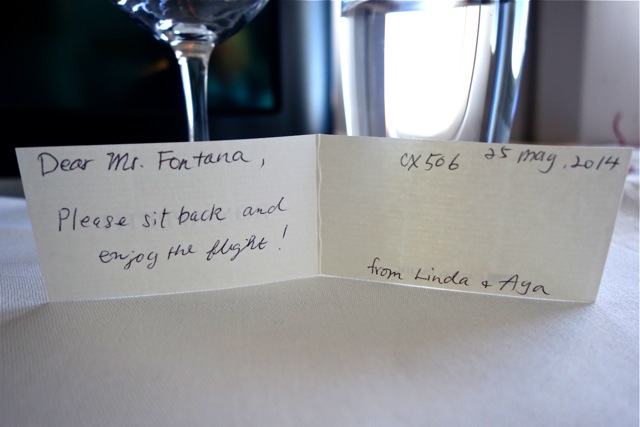 Dear Mr. Fontana,
Please sit back and
enjoy the flight!
CX506 25 may, 2014
from Linda & Aya